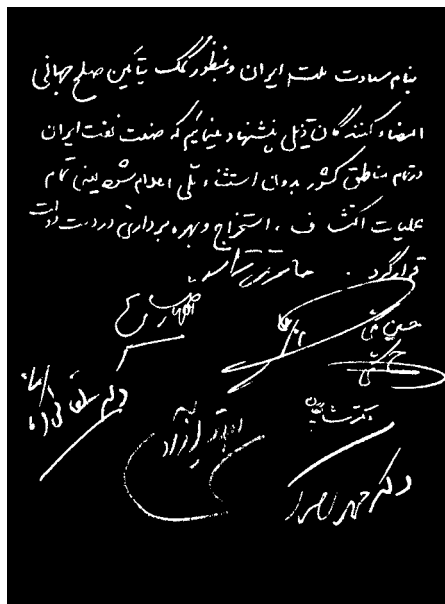 بنام سعادت ملت ایران و بمنظور کمک بتأمین صلح جهانی
امضاء کنندگان ذیل پیشنهاد مینمائیم که صنعت نفت ایران
در تمام مناطق کشور بدون استثناء ملی اعلام شود یعنی تمام
عملیات اکتشاف ، استخراج و بهره برداری در دست دولت
قرار گیرد . حائری زاده
اللهیار صالح
حسین مکی
دکتر بقائی
دکتر شایگان
آزاد
دکتر